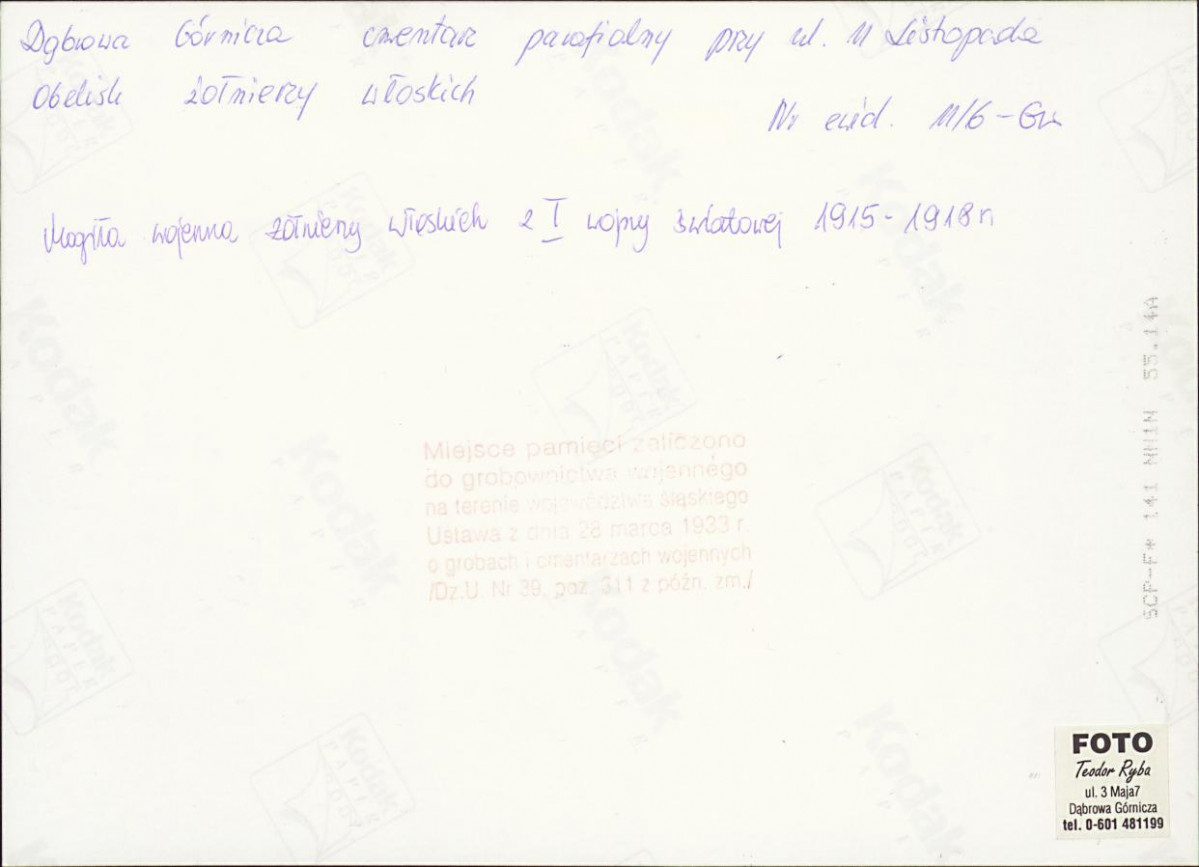 Dąbrowa Górnicza cmentarz parafialny przy ul. 11 Listopada
Obelisk żołnierzy włoskich
Nr ewid. 11/6-Gw
Mogiła wojenna żołnierzy włoskich z I wojny światowej 1915-1918 r.
Miejsce pamięci zaliczono
do grobownictwa wojennego
na terenie województwa śląskiego
Ustawa z dnia 28 marca 1933 r.
o grobach i cmentarzach wojennych
/Dz.U. Nr 39, poz. 311 z późn. zm./
SCP-F* 141 NN1N 55.14A
FOTO
Teodor Ryba
ul. 3 Maja7
Dąbrowa Górnicza
tel. 0-601 481199
Kodak